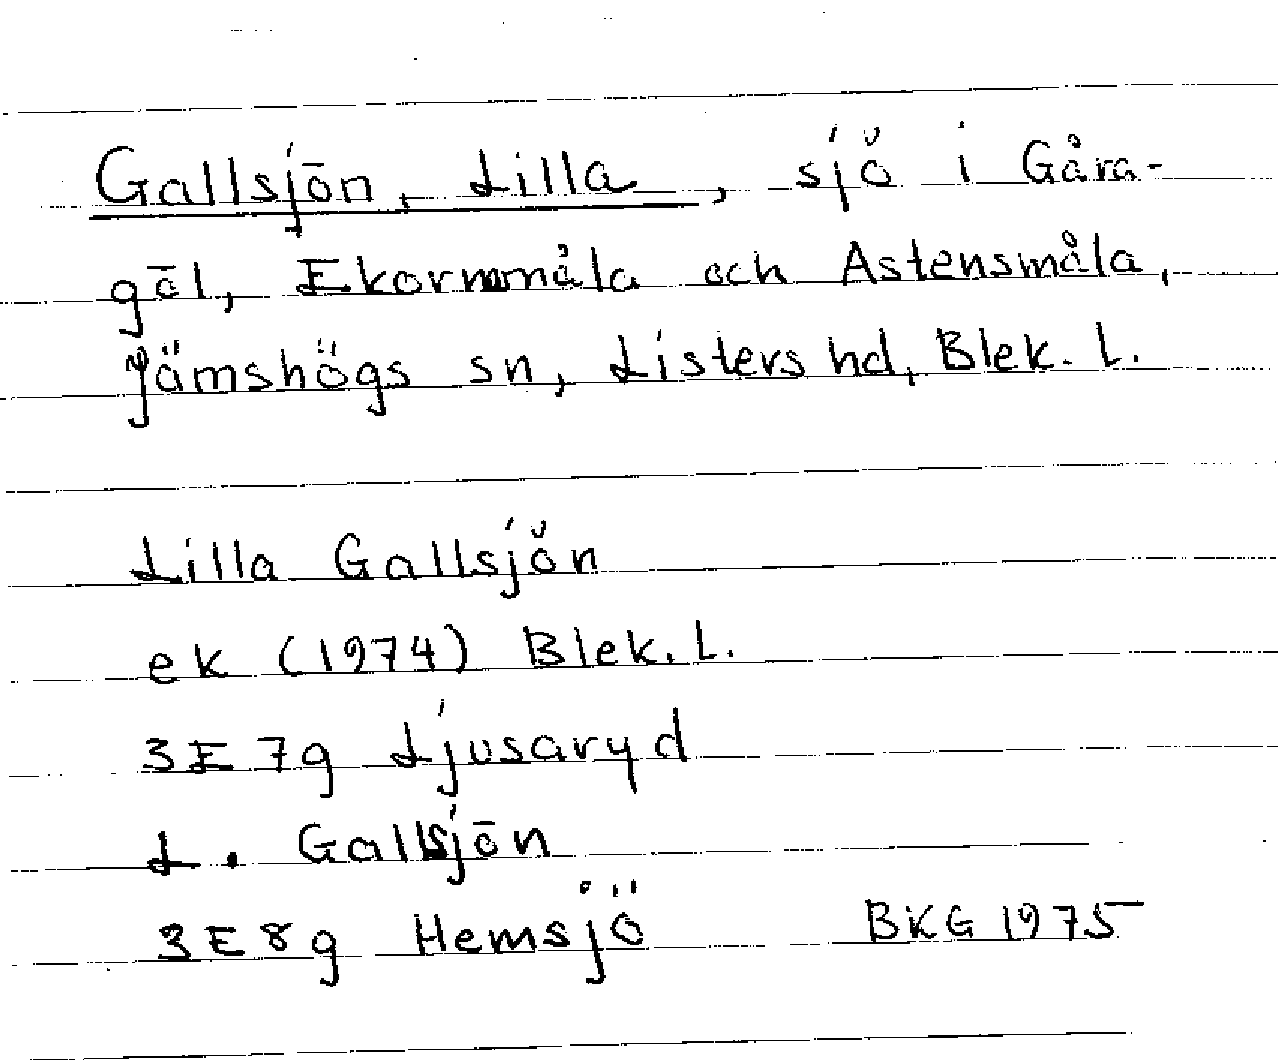 Gallsjön, Lilla, sjö i Gåra-
göl, Ekornmåla och Astensmåla,
Jämshögs sn, Listers hd, Blek. l.
Lilla Gallsjön
ek (1974) Blek. l.
3E7g Ljusaryd
L. Gallsjön
3E8g Hemsjö BKG 1975